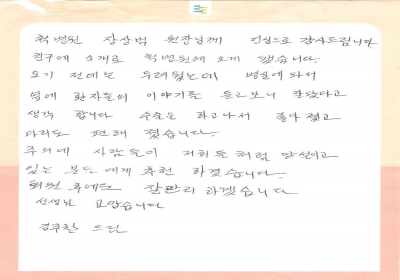 척병원 장상범 원장님께 진심으로 감사드립니다
친구에 소개로 척병원에 오게 됐습니다.
오기 전에는 두려웠는데 병원에 와서
옆에 환자들의 이야기를 듣고보니 잘왔다고
생각 합니다 수술은 하고나서 좋아졌고
다리도 편해 졌습니다.
주위에 사람들이 저희들처럼 망설이고
있는 분들에게 추천 하겠습니다.
퇴원 후에도 잘관리 하겠습니다
선생님 고맙습니다
드림